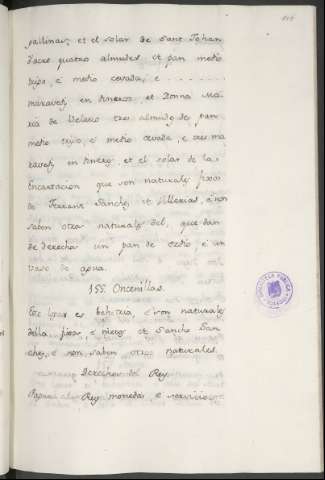 gallinas, et el solar de Sant Johan
d'acre quatro almudes et pan medio
trigo, e medio cevada, e
maravets en dineros, et Donna Ma-
ria de Velasco tres almudes de pan
medio trigo, e medio cevada, e tres ma
ravets en dineros, et el solar de la
Encartacion que son naturales fijos
de Ferrant Sanches et Villerias, e non
saben otros naturales del, que dan
de derecho un pan de e un
vaso de agua.
155. Oncenillas.
Este logar es behetria, e son naturales
della fijos, e nietos et Sancho San
ches, e non saben otros naturales.
Derechos del Rey
Pagan al Rey moneda, e servicios.